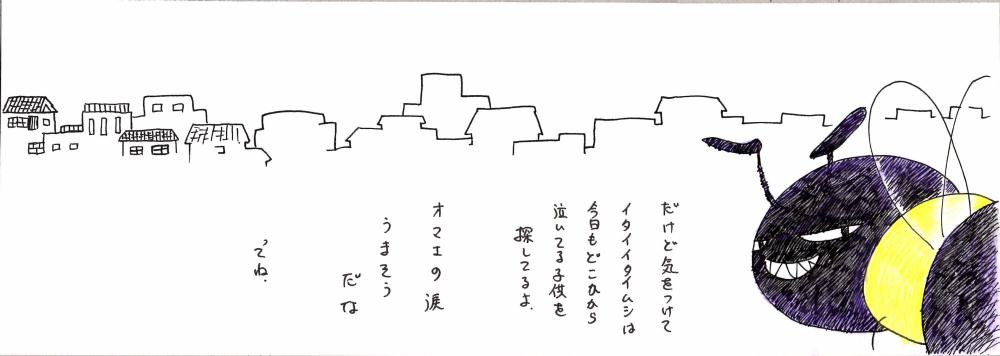 だけど気をつけて
イタイイタイムシは
今日もどこかから
泣いてる子供を
探してるよ.
オマエの涙
うまそう
だな
ってね.